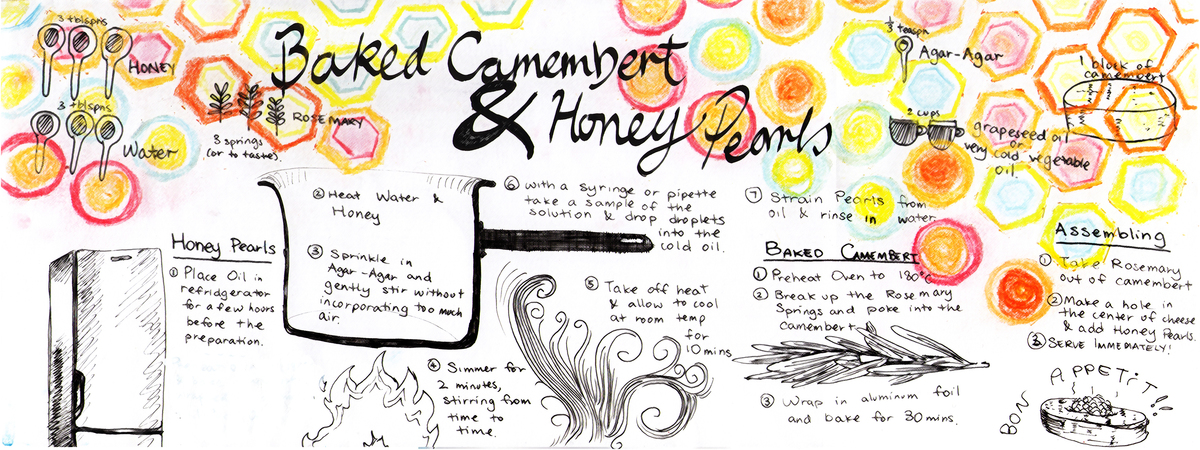 Baked Camembert
& Honey Pearls
3 tblspns
HONEY
3 tblspns
Water
ROSEMARY
3 springs
(or to taste).
1/3 teaspn
Agar-Agar
2 cups
grapeseed oil
or
very cold vegetable
oil.
1 block of
camembert
Honey Pearls
① Place Oil in
refridgerator
for a few hours
before the
preparation.
② Heat Water &
Honey
③ Sprinkle in
Agar-Agar and
gently stir without
incorporating too much
air.
④ Simmer for
2 minutes,
stirring from
time to
time.
⑤ Take off heat
& allow to cool
at room temp
for
10 mins
⑥ with a syringe or pipette
take a sample of the
solution & drop droplets
into the
cold oil.
⑦ Strain Pearls from
oil & rinse in water.
BAKED CAMEMBERT
① Preheat Oven to 180°C
② Break up the Rosemary
Springs and poke into the
Camembert
③ Wrap in aluminum foil
and bake for 30 mins.
Assembling
① Take Rosemary
out of camembert
② Make a hole in
the center of cheese
& add Honey Pearls.
③ SERVE IMMEDIATELY!
BON APPETIT!!